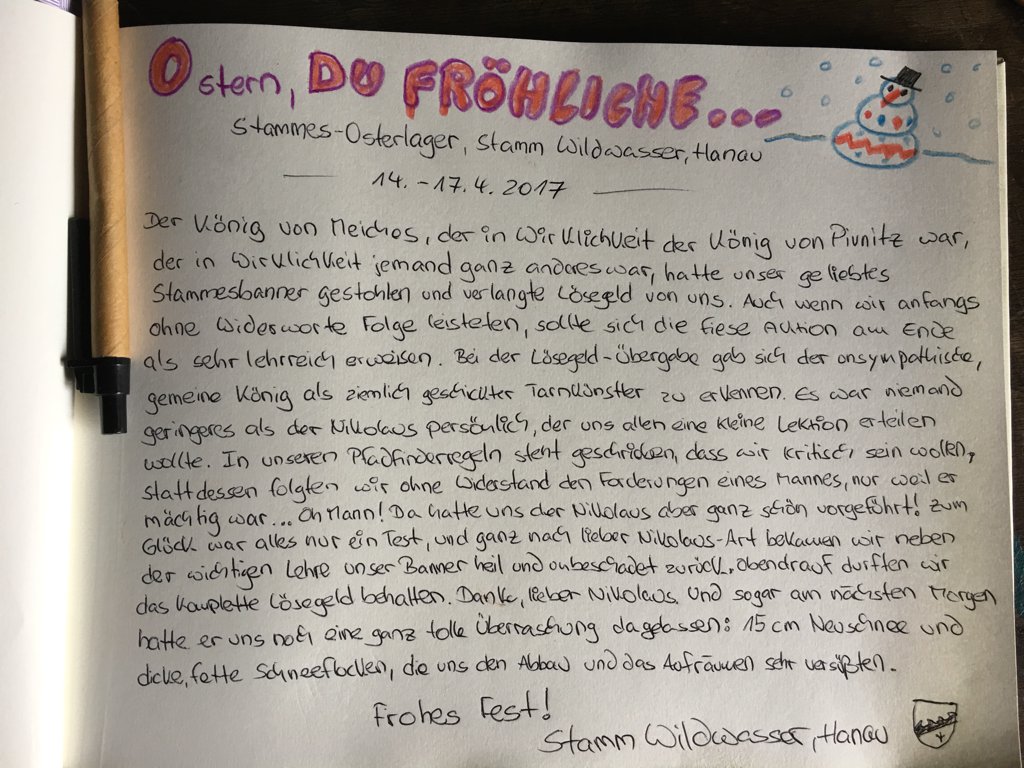 Ostern, DU FRÖHLICHE...
Stammes-Osterlager, Stamm Wildwasser, Hanau
14. - 17.4. 2017
Der König von Meichos, der in Wirklichkeit der König von Pivnitz war,
der in Wirklichkeit jemand ganz anderes war, hatte unser geliebtes
Stammesbanner gestohlen und verlangte Lösegeld von uns. Auch wenn wir anfangs
ohne Widerworte Folge leisteten, sollte sich die fiese Aktion am Ende
als sehr lehrreich erweisen. Bei der Lösegeld-Übergabe gab sich der unsympathiste,
gemeine König als ziemlich geschickter Tarnkünstler zu erkennen. Es war niemand
geringeres als der Nikolaus persönlich, der uns allen eine kleine Lektion erteilen
wollte. In unseren Pfadfinderregeln steht geschrieben, dass wir kritisch sein wollen,
stattdessen folgten wir ohne Widerstand den Forderungen eines Mannes, nur weil er
mächtig war... Oh Mann! Da hatte uns der Nikolaus aber ganz schön vorgeführt! Zum
Glück war alles nur ein Test, und ganz nach lieber Nikolaus-Art bekamen wir neben
der wichtigen Lehre unser Banner heil und unbeschadet zurück, obendrauf durften wir
das komplette Lösegeld behalten. Danke, lieber Nikolaus. Und sogar am nächsten Morgen
hatte er uns noch eine ganz tolle Überraschung dagelassen: 15 cm Neuschnee und
dicke, fette Schneeflocken, die uns den Abbau und das Aufräumen sehr versüßten.
Frohes Fest!
Stamm Wildwasser, Hanau